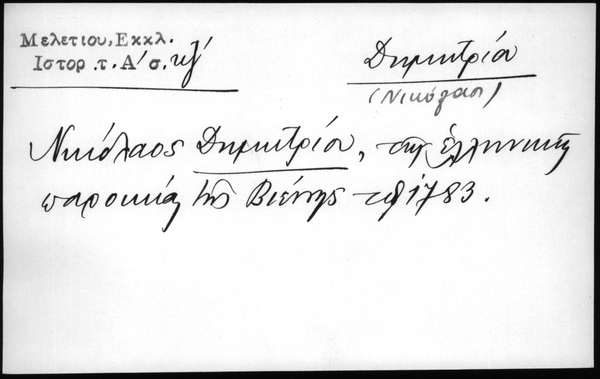 Μελετίου, Εκκλ.
Ιστορ. τ. Α´ σ. κζ´
Δημητρίου
(Νικόλαος)
Νικόλαος Δημητρίου, τῆς ἑλληνικῆς
παροικίας τῆς Βιέννης τῷ 1783.